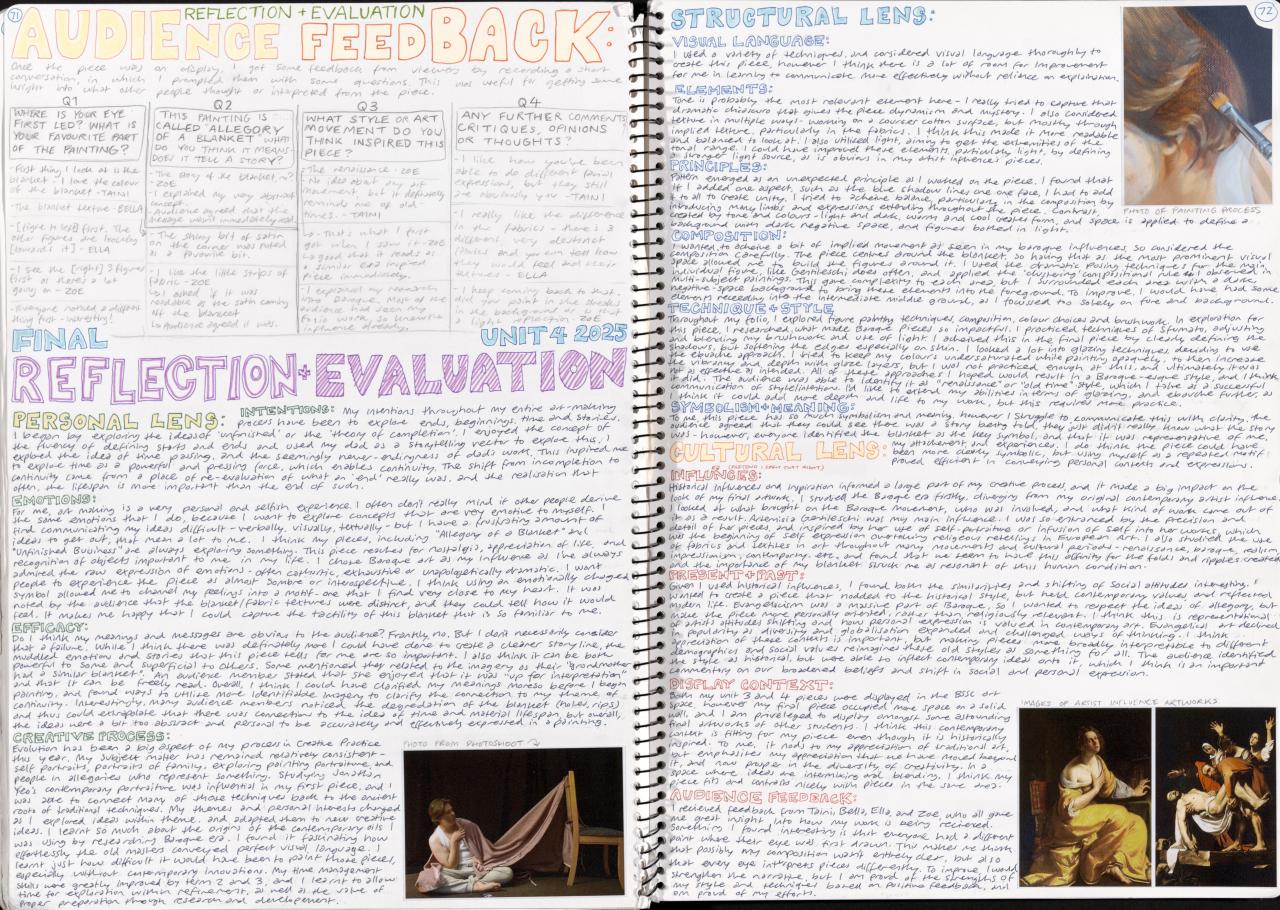 71
REFLECTION + EVALUATION
AUDIENCE FEEDBACK:
Once the piece was on display, I got some feedback from viewers by recording a short
conversation in which I prompted them with some questions. This was useful for getting some
insight into what other people thought or interpreted from the piece.
Q1
WHERE IS YOUR EYE
FIRST LED? WHAT IS
YOUR FAVOURITE PART
OF THE PAINTING?
-First thing I look at is the
blanket - I love the colour
of the blanket -TAINI
-The blanket texture -BELLA
-[figure to left] first. The
two figures are looking
toward it] ELLA
-I see the [right] 3 figures
first as there's a lot
going on - ZOE
-Everyone noticed a different
thing first - interesting!
Q2
THIS PAINTING IS
CALLED 'ALLEGORY
OF A BLANKET'. WHAT
DO YOU THINK IT MEANS-
DOES IT TELL A STORY?
-The story of the blanket,
ZOE
-I explained my very abstract
concept.
-Audience agreed that the
-The shiny bit of satin
on the corner was noted
as a favourite bit.
-I like the little strips of
fabric - ZOE
-I asked if it was
readable as the satin coming
off the blanket
↳ Audience agreed it was.
Q3
WHAT STYLE OR ART
MOVEMENT DO YOU
THINK INSPIRED THIS
PIECE?
-The renaissance - ZOE
-No idea about any art
movement, but it definitely
reminds me of old-
times. - TAINI
so good that it reads as
a similar era inspired
piece immediately.
Q4
ANY FURTHER COMMENTS,
CRITIQUES, OPINIONS
OR THOUGHTS?
-I like how you've been
able to do different facial
expressions but they still
all look like you - TAINI
- ELLA
FINAL
UNIT 4 2025
REFLECTION + EVALUATION
PERSONAL LENS:
INTENTIONS: My intentions throughout my entire art-making
process have been to explore ends, beginnings, time and stories.
I began by exploring the idea of 'unfinished' or the 'theory of completion'. I enjoyed the concept of
the divinity of defining starts and ends and used my dad as a storytelling vector to explore this. I
explored the idea of time passing, and the seemingly never-endingness of dad's work. This inspired me
to explore time as a powerful and pressing force, which enables continuity. The shift from incompletion to
continuity came from a place of re-evaluation of what an 'end' really was, and the realisation that
often, the lifespan is more important than the end of such.
EMOTIONS:
For me, art making is a very personal and selfish experience. I often don't really mind if other people derive
the same emotions that I do, because I want to explore concepts that are very emotive to myself. I
find communicating my ideas difficult - verbally, visually, textually - but I have a frustrating amount of
ideas to get out, that mean a lot to me. I think my pieces, including "Allegory of a Blanket" and
"Unfinished Business" are always exploring something. This piece reaches for nostalgia, appreciation of life, and
recognition of objects important to me in my life. I chose Baroque art as my influence as I've always
admired the raw expression of emotions - often cathartic, exhaustive or unapologetically dramatic. I want
people to experience the piece as almost sombre or introspective. I think using an emotionally charged
symbol allowed me to channel my feelings into a motif - one that I find very close to my heart. It was
noted by the audience that the blanket/fabric textures were distinct, and they could tell how it would
feel. It makes me happy that I could capture the tactility of this blanket that is so familiar to me.
EFFICACY:
Do I think my meanings and messages are obvious to the audience? Frankly, no. But I don't necessarily consider
that a failure. While I think there was definitely more I could have done to create a clearer storyline, the
muddled emotion and stories that this piece tells for me are so important. I also think it can be both
powerful to some and superficial to others. Some mentioned they related to the imagery as their "grandmother
had a similar blanket". An audience member stated that she enjoyed that it was "up for interpretation
and that it can be freely read. Overall, I think I could have clarified my meanings moreso before I began
painting, and found ways to utilise more identifiable imagery to clarify the connection to my theme of
continuity. Interestingly, many audience members noticed the degredation of the blanket (holes, rips)
and thus could extrapolate that there was connection to the idea of time and material lifespan, but overall,
the ideas were a bit too abstract and personal to be accurately and effectively expressed in a painting.
CREATIVE PROCESS:
Evolution has been a big aspect of my process in Creative Practice
this year. My subject matter has remained relatively consistent -
self portraits, portraits of family, exploring painting portraiture, and
people in allegories who represent something. Studying Jonathan
Yeo's contemporary portraiture was influential in my first piece, and I
was able to connect many of those techniques back to the ancient
roots of traditional techniques. My themes and personal interests changed
as I explored ideas within theme, and adapted them to new creative
ideas. I learnt so much about the origins of the contemporary oils I
was using by researching Baroque era. I found it fascinating how
effortlessly the old masters conveyed perfect visual language. I
learnt just how difficult it would have been to paint those pieces,
especially without contemporary innovations. My time management
skills were greatly improved by term 2 and 3, and I learnt to allow
time for exploration within refinement, as well as the value of
proper preparation through research and development.
PHOTO FROM PHOTOSHOOT
72
STRUCTURAL LENS:
VISUAL LANGUAGE:
I used a variety of techniques, and considered visual language thoroughly to
create this piece, however I think there is a lot of room for improvement
for me in learning to communicate more effectively without reliance on explanation.
ELEMENTS:
Tone is probably the most relevant element here - I really tried to capture that
dramatic chiascuro that gives the piece dynamism and mystery. I also considered
texture in multiple ways: working on a coarser cotton surface, but mostly through
implied texture, particularly in the fabrics. I think this made it more readable
and balanced to look at. I also utilised light, aiming to get the extremities of the
tonal range. I could have improved these elements, particularly light, by defining
a stronger light source, as is obvious in my artist influence's pieces.
PRINCIPLES:
Pattern emerged as an unexpected principle as I worked on the piece. I found that
if I added one aspect, such as the blue shadow lines one one face, I had to add
it to all to create unity. I tried to acheive balance, particularly in the composition by
introducing many limbs and expressions extending throughout the piece. Contrast,
created by tone and colours - light and dark, warm and cool creates form, and space is applied to define a
background with dark negative space, and figures bathed in light.
PHOTO OF PAINTING PROCESS
COMPOSITION:
I wanted to acheive a bit of implied movement as seen in my baroque influences, so considered the
composition carefully. The piece centres around the blanket, so having that as the most prominent visual
space allowed me to build the figures around it. I used the dramatic posing techniques for the main,
individual figure, like Gentileschi does often, and applied the 'clustering' compositional rule to I observed in
multi-subject paintings. This gave complexity to each area but I surrounded each area with a dark,
negative space background to bring these elements into the foreground. To improve, I would have had some
elements receeding into the intermediate middle ground, as I focussed too solely on fore and background.
TECHNIQUE + STYLE
Throughout my folio, I explored figure painting techniques, composition, colour choices and brushwork. In exploration for
this piece, I researched what made Baroque Pieces so impactful. I practiced techniques of sfumato, adjusting
and blending my brushwork and use of light. I acheived this in the final piece by clearly defining the
shadows, but softening the edges especially on skin. I looked a lot into glazing techniques, deciding to use
the ebauche approach. I tried to keep my colours undersaturated while painting opaquely, to then increase
the vibrance and depth with glaze layers, but I was not practiced enough at this, and ultimately it was
not as effective as intended. All of these approaches I hoped would result in a Baroque-esque style, and I think
it did. The audience was able to identify it as "renaissance" or "old time" style, which I take as a successful
communication of stylisation. I'd like to extend my abilities in terms of glazing, and ebauche further, as
I think it could add more depth and life to my work, but this required more practice.
SYMBOLISM + MEANING:
To me this piece has so much symbolism and meaning, however I struggle to communicate this with clarity. The
audience agreed that they could see there was a story being told, they just didn't really know what the story
was - however, everyone identified the blanket as the key symbol, and that it was representative of me,
my attachment and experiences. I do think the piece could have
been more clearly symbolic, but using myself as a repeated motif
proved efficient in conveying personal context and expressions.
CULTURAL LENS:
INFLUNCES:
Historical influences and inspiration informed a large part of my creative process, and it made a big impact on the
look of my final artwork. I studied the Baroque era firstly, diverging from my original contemporary artist influence.
I looked at what brought on the Baroque Movement, who was involved, and what kind of work came out of
it as a result. Artemisia Gentileschi was my main influence. I was so embraced by the precision and
detail of her pieces, and inspired by her use of self-portraiture or infusion of self into her works, which
was the beginning of self expression overtaking religious retellings in European Art. I also studied the use
of fabrics and textiles in art throughout many movements and cultural periods - renaissance, baroque, realism,
impressionism, contemporary, etc., and found that we seem to have this affinity for the folds and ripples created
and the importance of my blanket struck me as resonant of this human condition.
PRESENT + PAST:
As I used historical influences, I found both the similarities and shifting of social attitudes interesting. I
wanted to create a piece that nodded to the historical style, but held contemporary values and reflected
modern life. Evangelicism was a massive part of Baroque, so I wanted to respect the ideas of allegory, but
make the piece more personally oriented, rather than religiously relevant. I think this is representational
of artist's attitudes shifting and how personal expression is valued in contemporary art. Evangelical art declined
in popularity as diversity and globalisation expanded and challenged ways of thinking. I think
appreciation of these contexts is important, but making pieces more broadly interpretable to different
demographics and social values reimagines these old styles as something for all. The audience identified
the style as historical, but were able to inflect contemporary ideas onto it, which I think is an important
commentary on our broadened beliefs and shift in social and personal expression.
DISPLAY CONTEXT:
Both my unit 3 and 4 pieces were displayed in the BSSC art
space however my final piece occupied more space on a solid
wall, and I am priveleged to display amongst some astounding
final artworks of other students. I think this contemporary
context is fitting for my piece even though it is historically
inspired. To me, it nods to my appreciation of traditional art,
but emphasises my appreciation that we have moved beyond
it, and now prosper in the diversity of creativity. In a
space where ideas are intermixing and blending, I think my
piece fits and contrasts nicely with pieces in the same area.
AUDIENCE FEEDBACK:
I recieved feedback from Taini, Bella, Ella and Zoe, who all gave
me great insight into how my work is being recieved.
Something I found interesting is that everyone had a different
point where their eye was first drawn. This makes me think
that possibly my composition wasn't entirely clear, but also
that every eye interprets pieces differently. To improve, I would
strengthen the narrative, but I am proud of the strengths of
my style and techniques based on positive feedback, and
am proud of my efforts.
IMAGES OF ARTIST INFLUENCE ARTWORKS